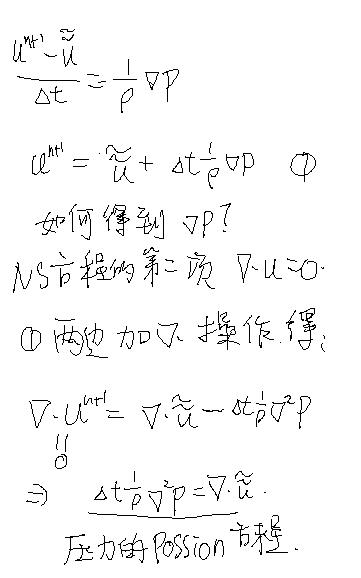 (uⁿ⁺¹ - ũ̃)/Δt = (1/ρ)∇P
uⁿ⁺¹ = ũ̃ + Δt (1/ρ)∇P ①
如何得到 ∇P?
NS方程的第二项 ∇·u=0.
①两边加∇· 操作得:
∇·uⁿ⁺¹ = ∇·ũ̃ - Δt(1/ρ)∇²P
||
0
⇒ Δt(1/ρ)∇²P = ∇·ũ̃.
压力的Possion方程.